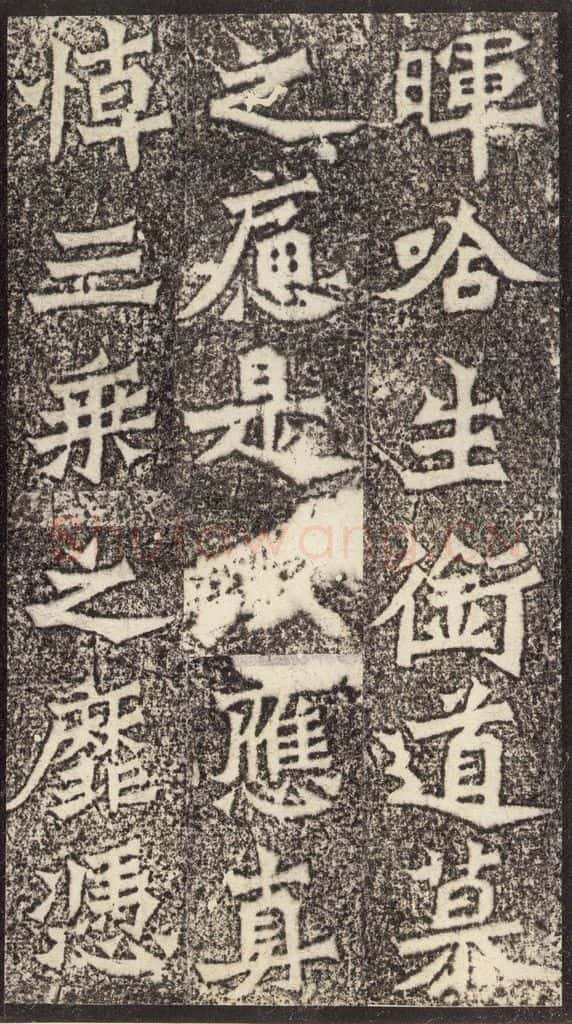 暉哈生銜道慕
之是應真
悼三乘之靡憑
shufawang.cn